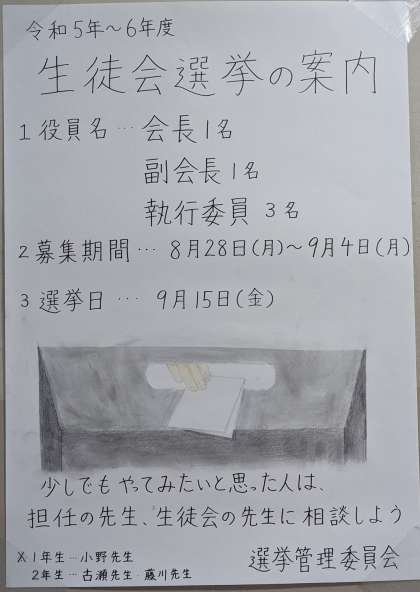 令和5年～6年度
生徒会選挙の案内
1 役員名…会長1名
副会長1名
執行委員 3名
2 募集期間… 8月28日(月)～9月4日(月)
3 選挙日… 9月15日(金)
少しでもやってみたいと思った人は、
担任の先生、生徒会の先生に相談しよう
※1年生…小野先生
2年生…古瀬先生・藤川先生
選挙管理委員会